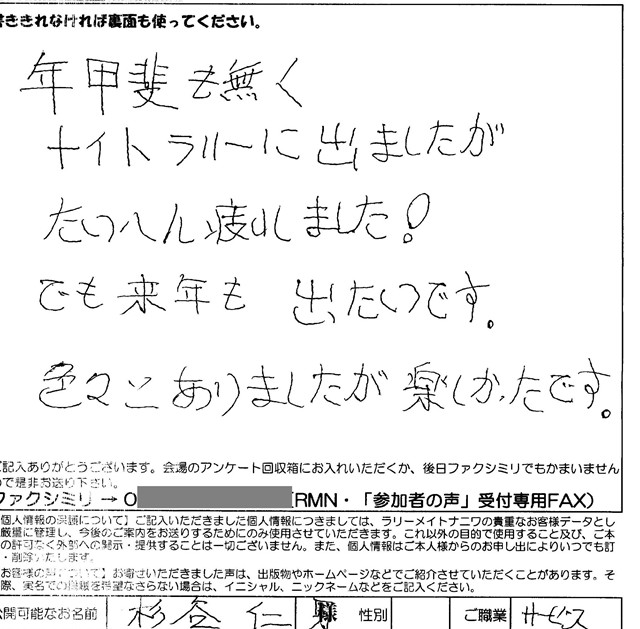 書ききれなければ裏面も使ってください。
年甲斐も無く
ナイトラリーに出ましたが
たいへん疲れました!
でも来年も 出たいです。
色々とありましたが 楽しかったです。
ご記入ありがとうございます。会場のアンケート回収箱にお入れいただくか、後日ファクシミリでもかまいません
ので是非お送り下さい。
ファクシミリ → 0 (RMN・「参加者の声」受付専用FAX)
個人情報の保護について】ご記入いただきました個人情報につきましては、ラリーメイトナニワの貴重なお客様データとし
厳重に管理し、今後のご案内をお送りするためにのみ使用させていただきます。これ以外の目的で使用すること及び、ご本
の許可なく外部への開示・提供することは一切ございません。また、個人情報はご本人様からのお申し出によりいつでも訂
・削除いたします。
お客様の声について】お寄せいただきました声は、出版物やホームページなどでご紹介させていただくことがあります。そ
際、実名での掲載を希望なさらない場合は、イニシャル、ニックネームなどをご記入ください。
公開可能なお名前 杉谷 仁 様 性別 ご職業 サービス